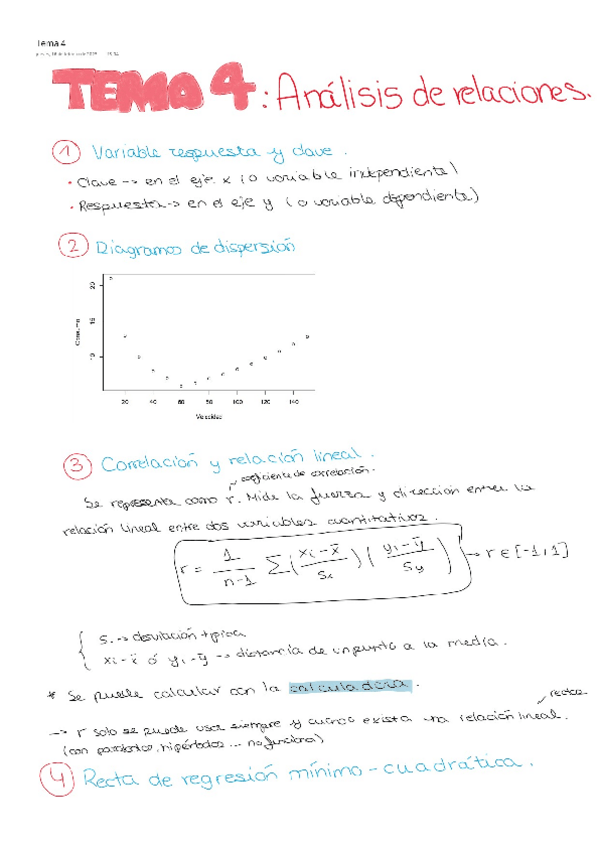 Tema 4
TEMA 4: Análisis de relaciones.
1 Variable respuesta y clave.
• Clave -> en el eje x (o variable independiente)
• Respuesta -> en el eje y (o variable dependiente)
2 Diagramas de dispersión
20
15
10
Consumo
20 40 60 80 100 120 140
Velocidad
3 Correlación y relación lineal.
coeficiente de correlación.
Se representa como r. Mide la fuerza y dirección entre la
relación lineal entre dos variables cuantitativas.
r = 1/(n-1) Σ((xi - x̄)/Sx)((yi - ȳ)/Sy) -> r ∈ [-1,1]
s. -> desviación típica
xi - x̄ ó yi - ȳ -> distancia de un punto a la media.
* Se puede calcular con la calculadora.
rectas
-> r solo se puede usar siempre y cuando exista una relación lineal.
(con parábolas, hipérbolas ... no funciona)
4 Recta de regresión mínimo-cuadrática.